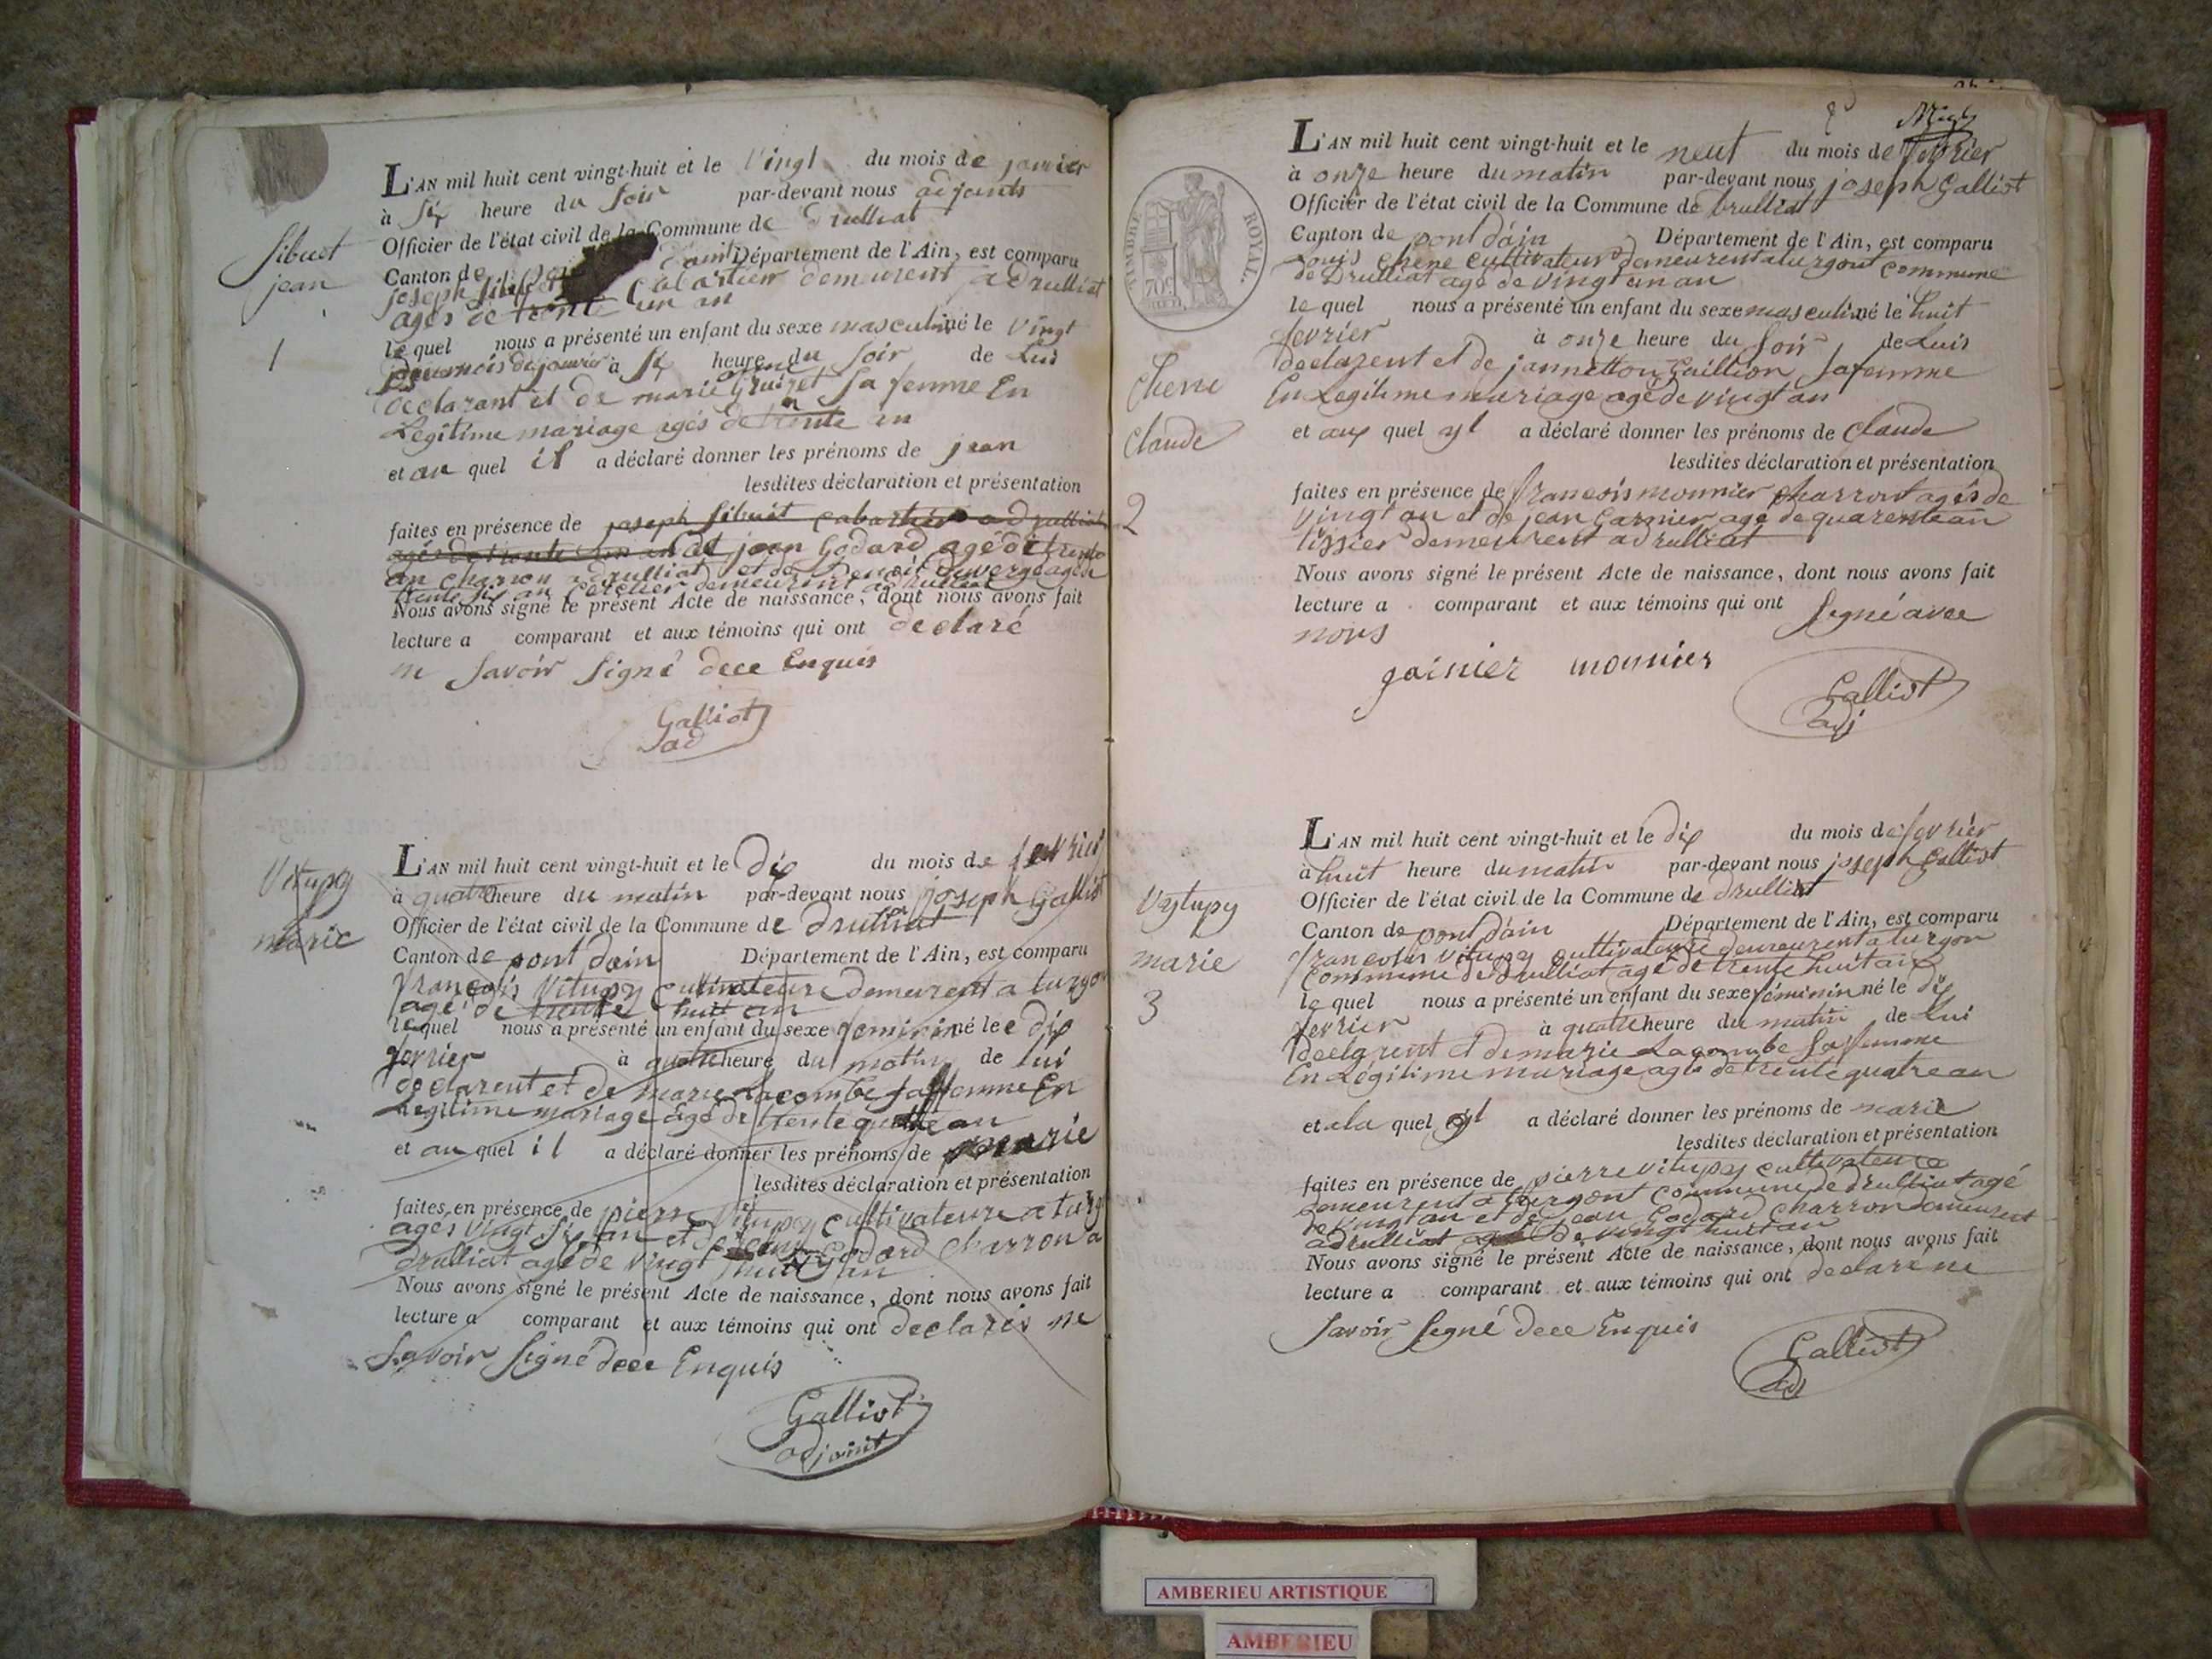 Sibuet
jean
1
L'AN mil huit cent vingt-huit et le Vingt du mois de janvier
à Six heure du Soir par-devant nous adjoints
Officier de l'état civil de la Commune de Drulliat
Canton de d'ain Département de l'Ain, est comparu
joseph Sibuet Cabartier demeurent a Drulliat
agés de trente un an
le quel nous a présenté un enfant du sexe masculin né le Vingt
du mois de janvier à Six heure du Soir de Lui
declarant et de marie Gruizet Sa femme En
Legitime mariage agés de trente an
et au quel il a déclaré donner les prénoms de jean
lesdites déclaration et présentation
faites en présence de joseph Sibuet Cabartier a Drulliat
agés de trente un an et de jean Godard agé de trente
an charron a Drulliat et de Benoit agé de
trente six an demeurent a Drulliat
Nous avons signé le présent Acte de naissance, dont nous avons fait
lecture a comparant et aux témoins qui ont declaré
ne Savoir Signé dece Enquis
Galliot
ad
Vitupy
marie
L'AN mil huit cent vingt-huit et le Dix du mois de fevrier
à quatre heure du matin par-devant nous joseph Galliot
Officier de l'état civil de la Commune de Drulliat
Canton de pont dain Département de l'Ain, est comparu
françois Vitupy Cultivateure demeurent a turgon
agé de trente huit an
le quel nous a présenté un enfant du sexe feminin né le e dix
fevrier à quatre heure du matin de lui
declarent et de marie Lacombe Sa femme En
Legitime mariage âgé de trente quatre an
et au quel il a déclaré donner les prénoms de marie
lesdites déclaration et présentation
faites en présence de pierre Vitupy Cultivateure a turg
agés vingt Six an et de jean Godard Charron a
drulliat agé de vingt huit an
Nous avons signé le présent Acte de naissance, dont nous avons fait
lecture a comparant et aux témoins qui ont declarés ne
Savoir Signé dece Enquis
Galliot
adjoint
TIMBRE ROYAL.
70c
Chene
Claude
2
L'AN mil huit cent vingt-huit et le neuf du mois de fevrier
à onze heure du matin par-devant nous joseph Galliot
Officier de l'état civil de la Commune de Drulliat
Canton de pont dain Département de l'Ain, est comparu
Louis Chene Cultivateur demeurent a turgont commune
de Drulliat agé de vingt an an
le quel nous a présenté un enfant du sexe masculin né le huit
fevrier à onze heure du Soir de Luis
declarent et de jannetton Gaillion Sa femme
En Legitime mariage agé de vingt an
et aux quel yl a déclaré donner les prénoms de Claude
lesdites déclaration et présentation
faites en présence de françois monnier charront agés de
vingt an et de jean Garnier age de quarente an
tissier demeurent a Drulliat
Nous avons signé le présent Acte de naissance, dont nous avons fait
lecture a comparant et aux témoins qui ont Segné avec
nous
gainier monnier
Galliot
adj
Vytupy
marie
3
L'AN mil huit cent vingt-huit et le dix du mois de fevrier
à huit heure du matin par-devant nous joseph Galliot
Officier de l'état civil de la Commune de Drulliat
Canton de pont dain Département de l'Ain, est comparu
françois Vitupy cultivateure demeurent a turgon
Commune de Drulliat agé de trente huit an
le quel nous a présenté un enfant du sexe féminin né le dix
fevrier à quatre heure du matin de Lui
declarent et de marie Lacombe Sa femme
En Légitime mariage agé de trente quatre an
et a la quel yl a déclaré donner les prénoms de marie
lesdites déclaration et présentation
faites en présence de pierre vitupy cultivateure
demeurent a turgont commune de drulliat agé
de vingt an et de jean Godard Charron demeurent
a drulliat agé de vingt huit an
Nous avons signé le présent Acte de naissance, dont nous avons fait
lecture a comparant et aux témoins qui ont declaré ne
Savoir Segné dece Enquis
Galliot
adj
AMBERIEU ARTISTIQUE
AMBERIEU